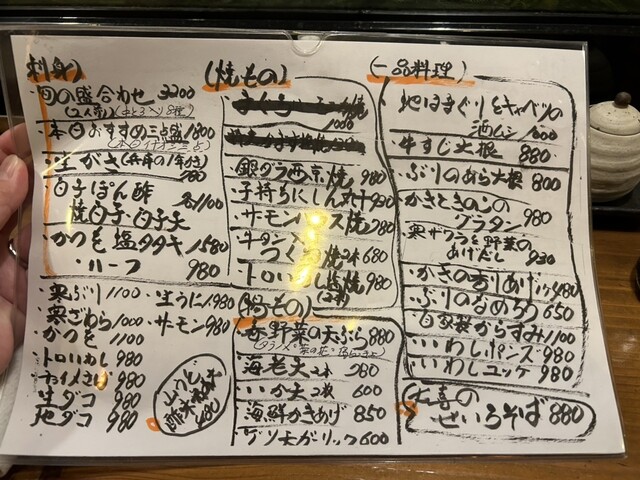 刺身)
旬の盛合わせ 3200
(2人前)
・本日おすすめ三点盛 1800
・生がき
980
・白子ぽん酢
焼白子・白子天 各1100
・かつを塩タタキ 1580
・ハーフ 980
・寒ぶり 1100
・寒ざわら 1000
・かつを 1100
・トロいわし 980
980
・生ダコ 980
・地ダコ 980
・生うに 1980
・サーモン 980
山うど
酢味噌
680
(焼もの)
1000
・銀ダラ西京焼 980
・子持ちにしん丸干 980
・サーモンハラス焼 780
・牛タン
つくね焼 2本 680
・トロいわし塩焼 980
(2本)
(揚もの)
・春野菜の天ぷら 880
・海老天 2本 980
・いか天 2枚 600
・海鮮かきあげ 850
・ゲソモガリック 600
(一品料理)
・地はまぐりとキャベツの
酒ムシ 1000
・牛すじ大根 880
・ぶりのあら大根 800
・かきときのこの
グラタン 980
・寒サワラと野菜の
あげだし 930
・かきの香りあげ 980
・ぶりのなめろう 650
・自家製からすみ 1100
・いわしポンズ 980
・いわしユッケ 980
・大喜の
せいろそば 880